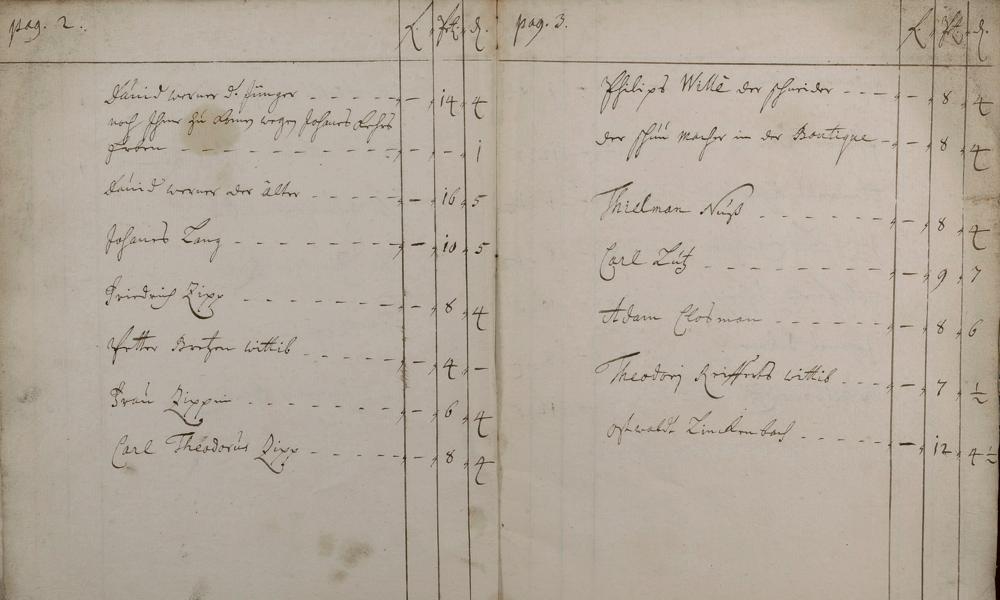 pag. 2.
David werner d. Jünger - - - - 14 4
noch Ihme zu wegen Johanes
Erben - - - - 1
David werner der älter - - - - 16 5
Johanes Lang - - - - 10 5
Friedrich Zipp - - - - 8 4
Petter wittib - - - - 4 -
Frau Zippin - - - - 6 4
Carl Theodorus Zipp - - - - 8 4
pag. 3.
Philips Wille der schneider - - - - 8 4
der schu macher in der Boutique - - 8 4
Thielman Nuß - - - - 8 4
Carl Lutz - - - - 9 7
Adam Closman - - - - 8 6
Theodorj wittib - - - - 7 ½
ostwaldt Linckenbach - - - - 12 4 ½